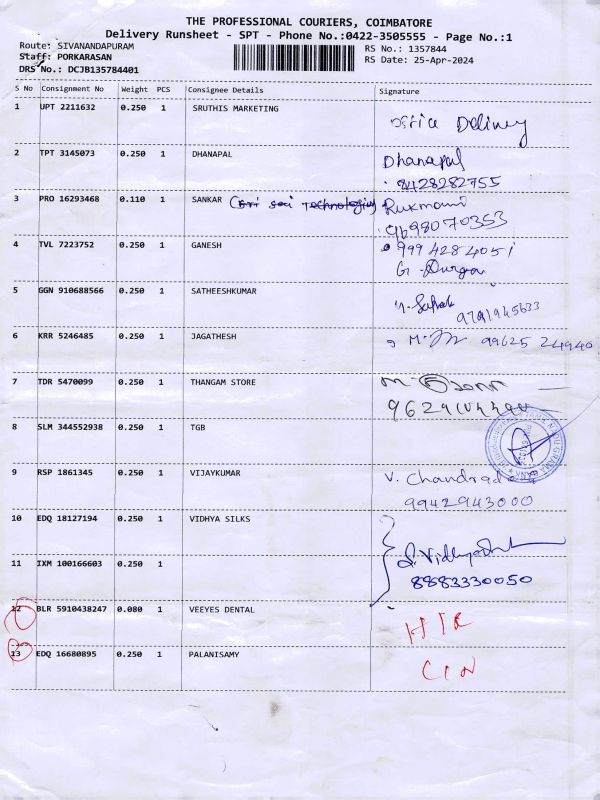 THE PROFESSIONAL COURIERS, COIMBATORE
Delivery Runsheet - SPT - Phone No.:0422-3505555 - Page No.:1
Route: SIVANANDAPURAM
RS No.: 1357844
Staff: PORKARASAN
RS Date: 25-Apr-2024
DRS No.: DCJB135784401
S No Consignment No Weight PCS Consignee Details Signature
1 UPT 2211632 0.250 1 SRUTHIS MARKETING
office Delivery
2 TPT 3145073 0.250 1 DHANAPAL Dhanapal
8428282755
3 PRO 16293468 0.110 1 SANKAR (Sri sai Technologies) Rukmani
9698070353
4 TVL 7223752 0.250 1 GANESH 9994284051
G. Durga
5 GGN 910688566 0.250 1 SATHEESHKUMAR
9791945633
6 KRR 5246485 0.250 1 JAGATHESH 99625 24940
7 TDR 5470099 0.250 1 THANGAM STORE
8 SLM 344552938 0.250 1 TGB
9 RSP 1861345 0.250 1 VIJAYKUMAR V. Chandra
9942943000
10 EDQ 18127194 0.250 1 VIDHYA SILKS
11 IXM 100166603 0.250 1
8883330050
12 BLR 5910438247 0.080 1 VEEYES DENTAL
13 EDQ 16680895 0.250 1 PALANISAMY